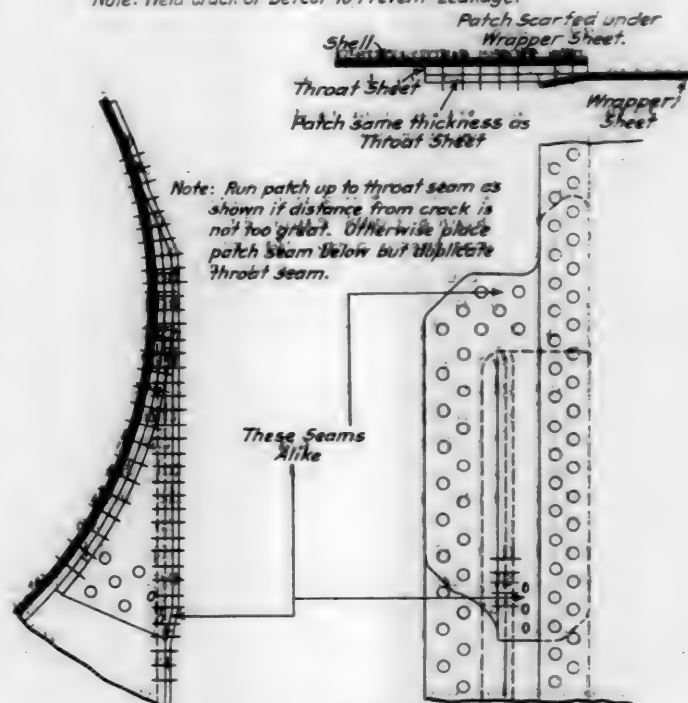 Note: Weld Crack or Defect to Prevent Leakage.
Patch Scarfed under
Wrapper Sheet.
Shell
Throat Sheet
Wrapper
Sheet
Patch same thickness as
Throat Sheet
Note: Run patch up to throat seam as
shown if distance from crack is
not too great. Otherwise place
patch seam below but duplicate
throat seam.
These Seams
Alike